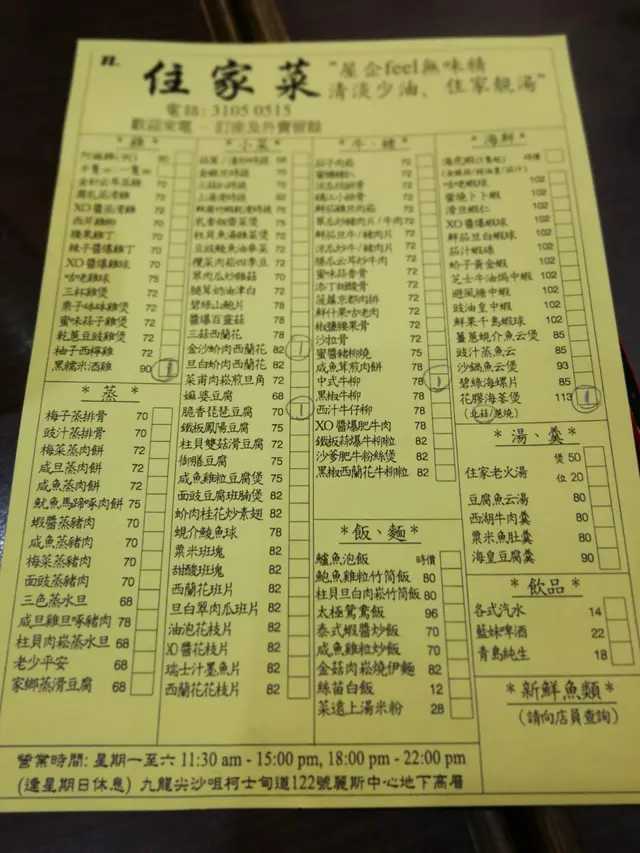 住家菜
"屋企feel無味精
清淡少油、住家靚湯"
電話: 3105 0515
歡迎來電 - 訂座及外賣服務
* 雞 *
金針云耳蒸雞 72
腐乳蒸滑雞 72
XO醬蒸滑雞 72
西芹雞柳 70
腰果雞丁 70
辣子醬爆雞丁 70
XO醬爆雞球 70
咕咾雞球 75
三杯雞煲 72
栗子砵砵雞煲 72
蜜味蒜子雞煲 72
乾蔥豆豉雞煲 72
柚子西檸雞 72
黑糯米酒雞 90 1
* 蒸 *
梅子蒸排骨 70
豉汁蒸排骨 70
梅菜蒸肉餅 70
咸旦蒸肉餅 72
咸魚蒸肉餅 72
魷魚馬蹄啄肉餅 75
蝦醬蒸豬肉 70
咸魚蒸豬肉 70
梅菜蒸豬肉 70
面豉蒸豬肉 70
三色蒸水旦 68
咸旦雞爆啄豬肉 78
柱貝肉崧蒸水旦 68
老少平安 68
家鄉蒸滑豆腐 68
* 小菜 *
豉椒鯪魚油麥菜 72
欖菜肉崧四季豆 72
翠肉瓜炒雞菇 70
腿茸奶油津白 72
碧綠山鮑片 78
醬爆百靈菇 78
三菇西蘭花 78
金沙蚧肉西蘭花 82 1
旦白蚧肉西蘭花 82
菜甫肉崧煎旦角 72
麻婆豆腐 68
脆香琵琶豆腐 70 1
鐵板鳳陽豆腐 75
柱貝雙菇滑豆腐 72
御膳豆腐 75
咸魚雞粒豆腐煲 75
面豉豆腐班腩煲 82
蚧肉桂花炒素翅 82
蜆介鯪魚球 78
粟米班塊 82
甜酸班塊 82
西蘭花班片 82
旦白翠肉瓜班片 82
油泡花枝片 82
XO醬花枝片 82
瑞士汁墨魚片 82
西蘭花花枝片 82
* 牛、豬 *
鮮茄豆牛/豬肉片 72
涼瓜炒牛/豬肉片 72
勝瓜云耳炒牛肉 72
蜜味蒜香骨 72
添丁甜酸骨 72
菠蘿京都肉排 72
鮮什果咕老肉 72
椒鹽腰果骨 72
沙拉骨 72
蜜醬豬柳燒 75
咸魚茸煎肉餅 78
中式牛柳 78 1
黑椒牛柳 78
西汁牛仔柳 78
XO醬爆肥牛肉 78
鐵板蒜爆牛柳粒 82
沙爹肥牛粉絲煲 82
黑椒西蘭花牛柳粒 82
* 飯、麵 *
鱸魚泡飯 時價
鮑魚雞粒竹筒飯 80
柱貝旦白肉崧竹筒飯 80
太極鴛鴦飯 96
泰式蝦醬炒飯 70
咸魚雞粒炒飯 70
金菇肉崧燒伊麵 82
絲苗白飯 12
菜遠上湯米粉 28
* 海鮮 *
咕咾蝦球 102
蜜燒卜卜蝦 102
滑豆蝦仁 102
XO醬爆蝦球 102
鮮茄旦白蝦球 102
茄汁蝦碌 102
蚧子黃金蝦 102
芝士牛油焗中蝦 102
避風塘中蝦 102
豉油皇中蝦 102
鮮果千島蝦球 102
薑蔥蜆介魚云煲 85
豉汁蒸魚云 85
沙鍋魚云煲 93
碧綠海螺片 85
花膠海參煲 113 1
(北菇/蔥燒)
* 湯、羹 *
煲 50
住家老火湯
位 20
豆腐魚云湯 80
西湖牛肉羹 80
粟米魚肚羹 80
海皇豆腐羹 90
* 飲品 *
各式汽水 14
藍妹啤酒 22
青島純生 18
* 新鮮魚類 *
(請向店員查詢)
營業時間: 星期一至六 11:30 am - 15:00 pm, 18:00 pm - 22:00 pm
(逢星期日休息) 九龍尖沙咀柯士甸道122號麗斯中心地下高層